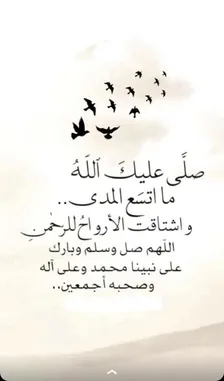 صلَّى عليكَ ٱللَّهُ
ما اتسَع المدى..
واشتاقت الأرواحُ للرحمٰنِ
اللهم صل وسلم وبارك
على نبينا محمد وعلى آله
وصحبه أجمعين..